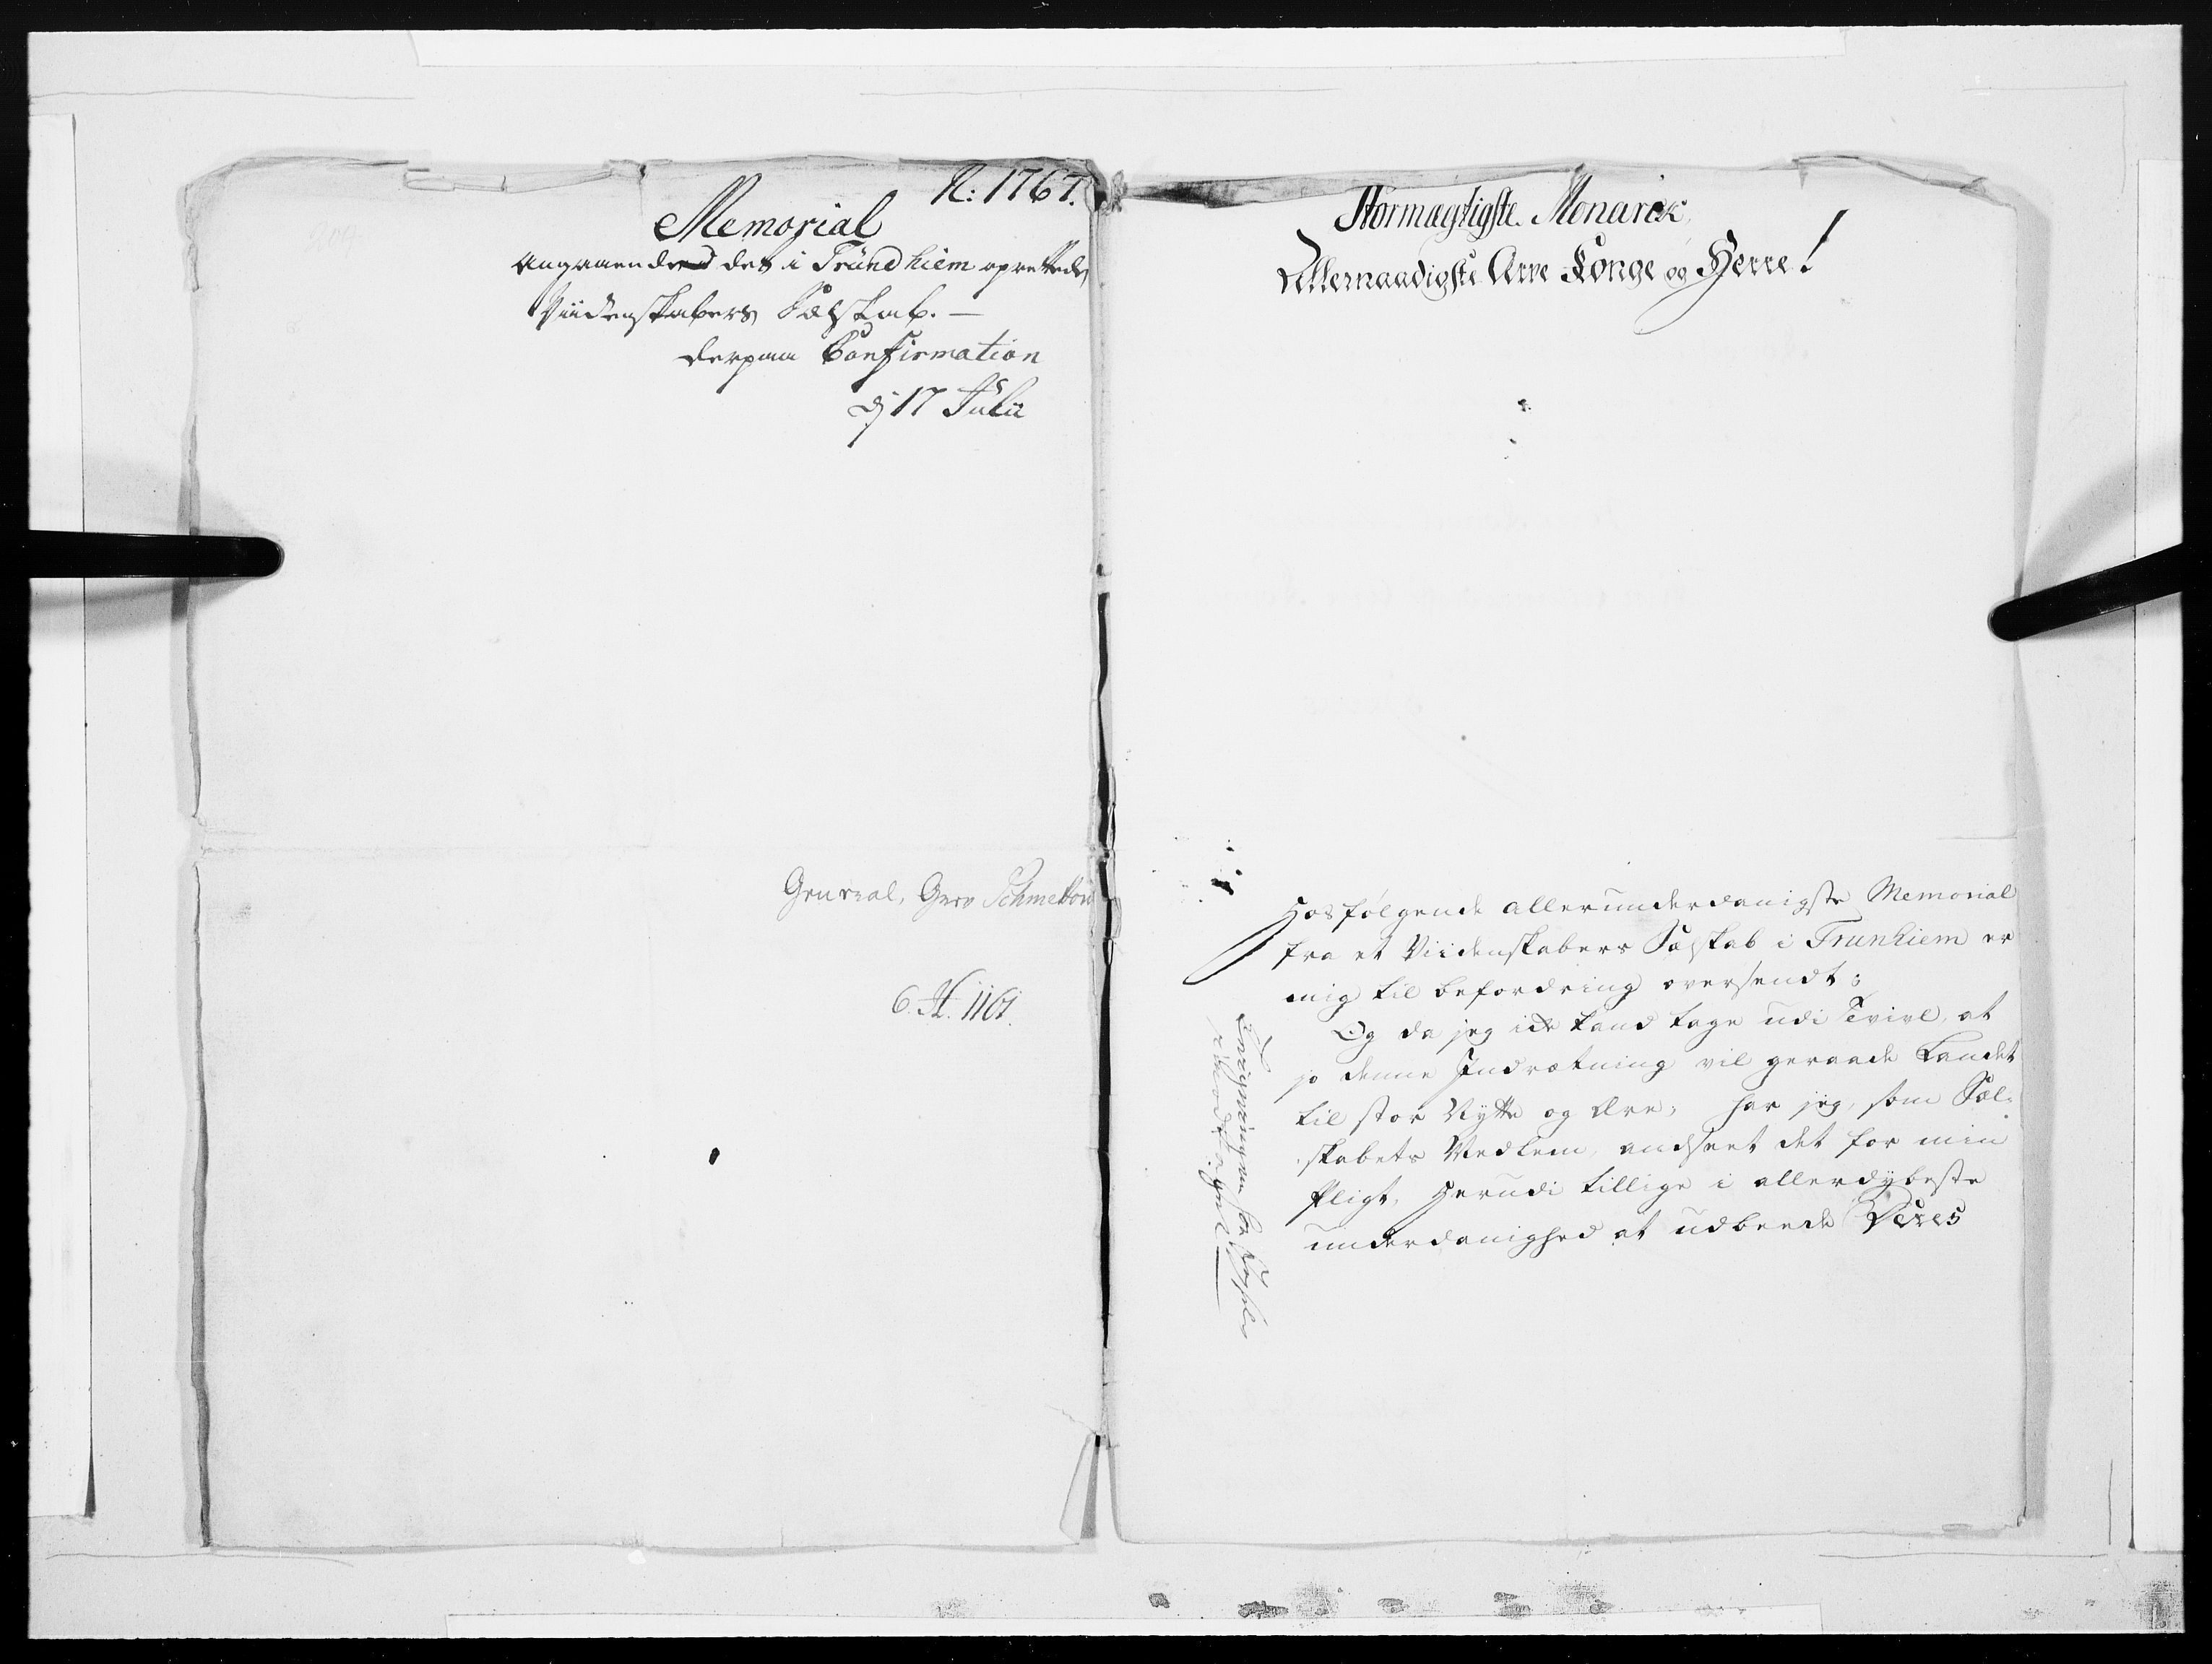 N: 1767.
Memorial
Angaaende det i Trundhiem oprettede
Viidenskabers Sælskab. —
derpaa Confirmation
d: 17 Julii
General, Grev Schmettou
Stormægtigste Monarck,
Allernaadigste Arve Konge og Herre!
Hosfølgende allerunderdanigste Memorial
fra et Viidenskabers Sælskab i Trunhiem er
mig til befordring oversendt;
Og da jeg icke kand tage udi Tvivl, at
jo denne Indrætning vil geraade Landet
til stor Nytte og Ære, har jeg, som Sæl-
skabets Medlem, andseet det for min
Pligt, herudi tillige i allerdybeste
underdanighed at udbeede Deres